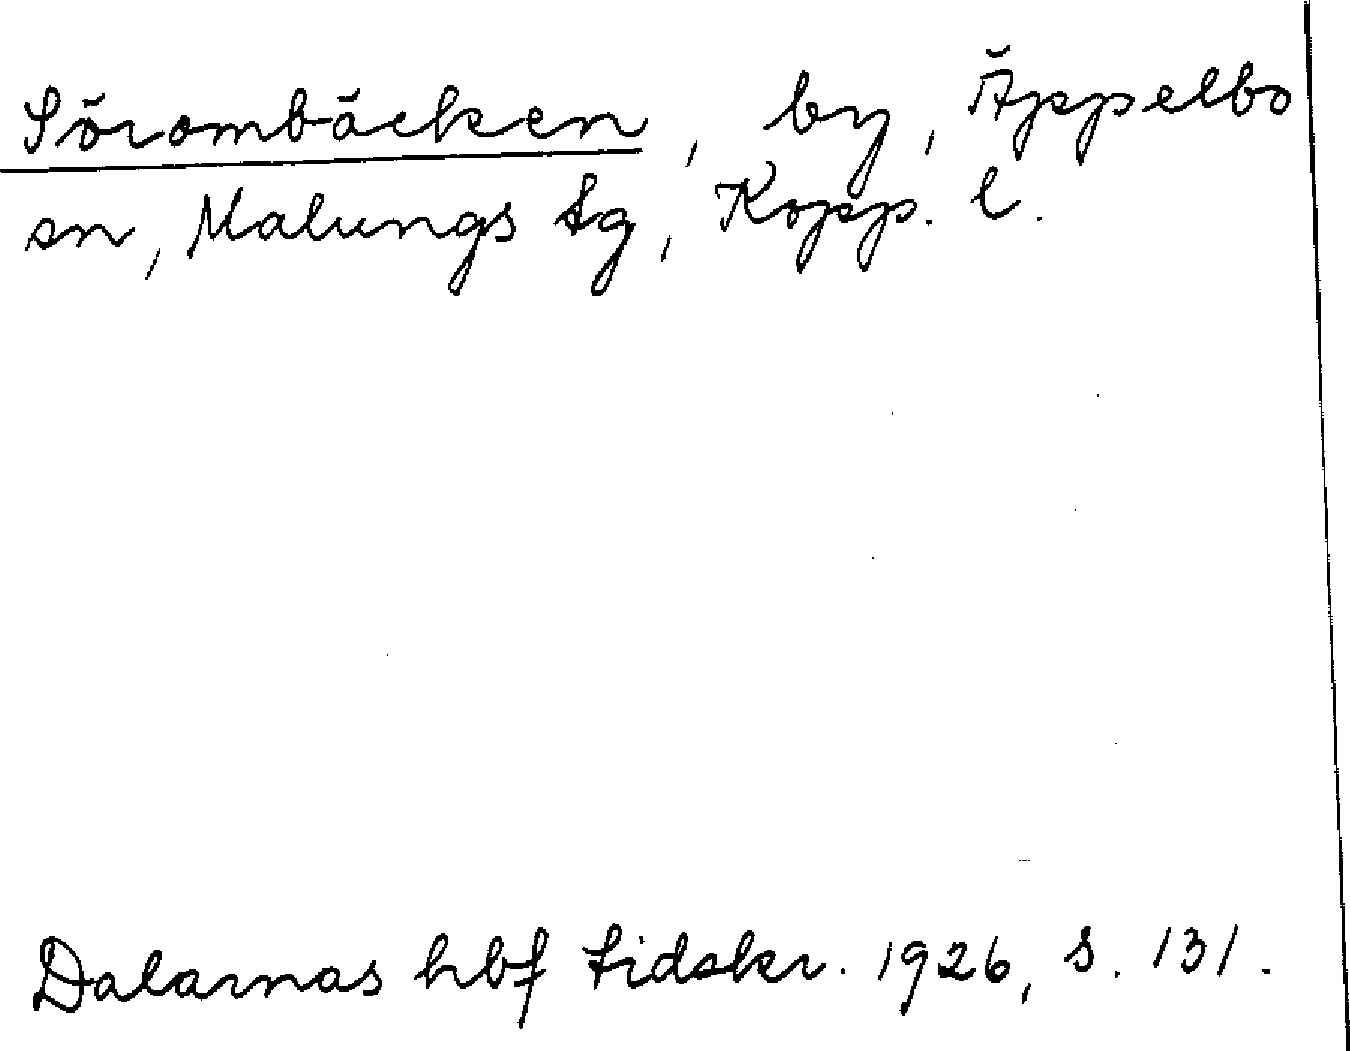 Sörombäcken, by, Äppelbo
sn, Malungs tg, Kopp. l.
Dalarnas hbf tidskr. 1926, s. 131.